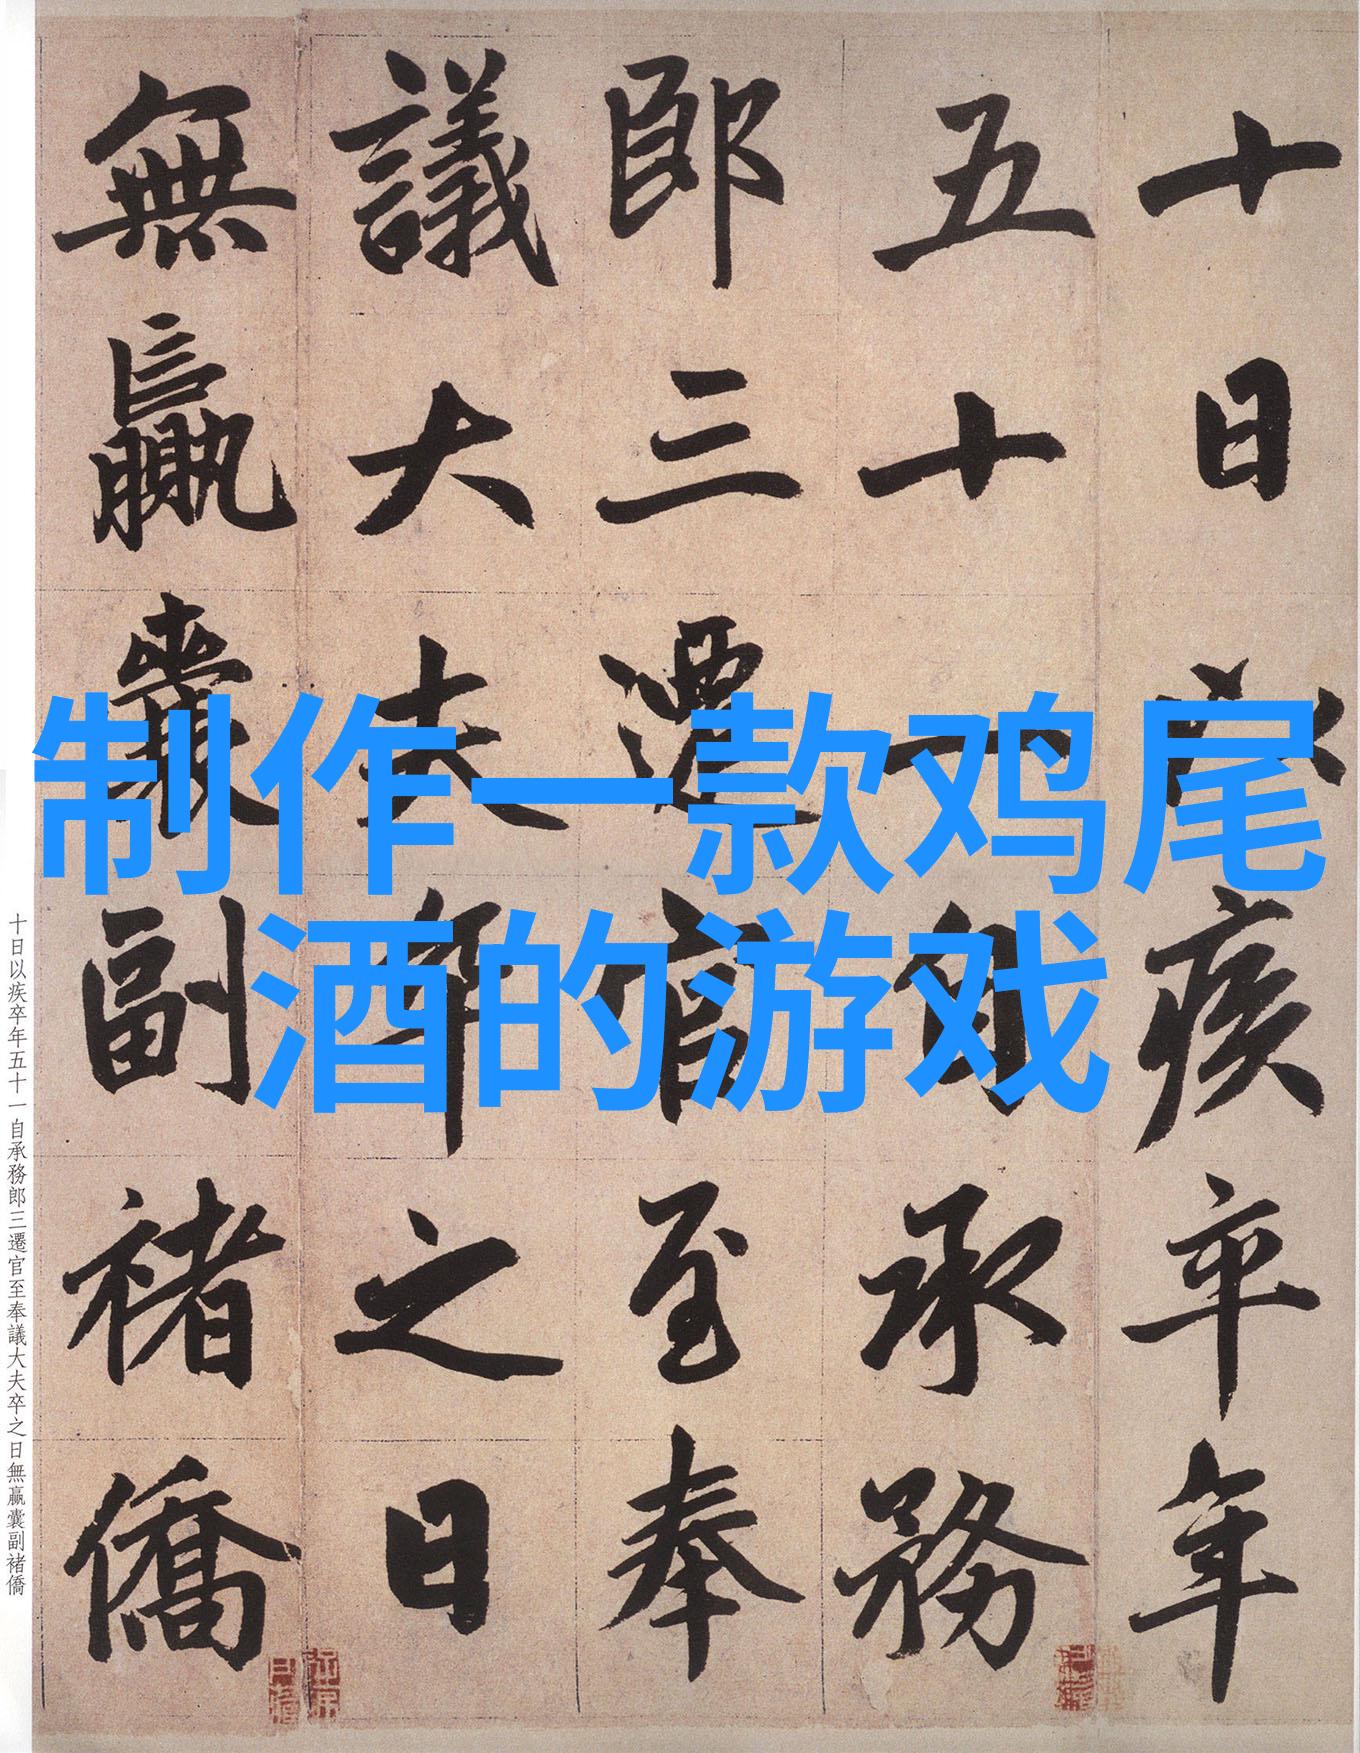 十日以疾卒年
五十一自承務
郎三遷官至奉
議大夫卒之日
無贏囊副褚僑
制作一款鸡尾
酒的游戏
十日以疾卒年五十一自承務郎三遷官至奉議大夫卒之日無贏囊副褚僑